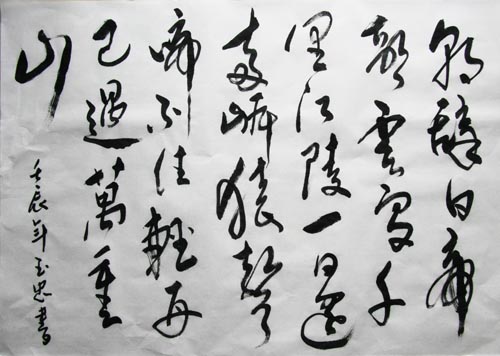 朝辭白帝
彩雲間千
里江陵一日還
兩岸猿聲
啼不住輕舟
已過萬重
山
壬辰年玉忠書